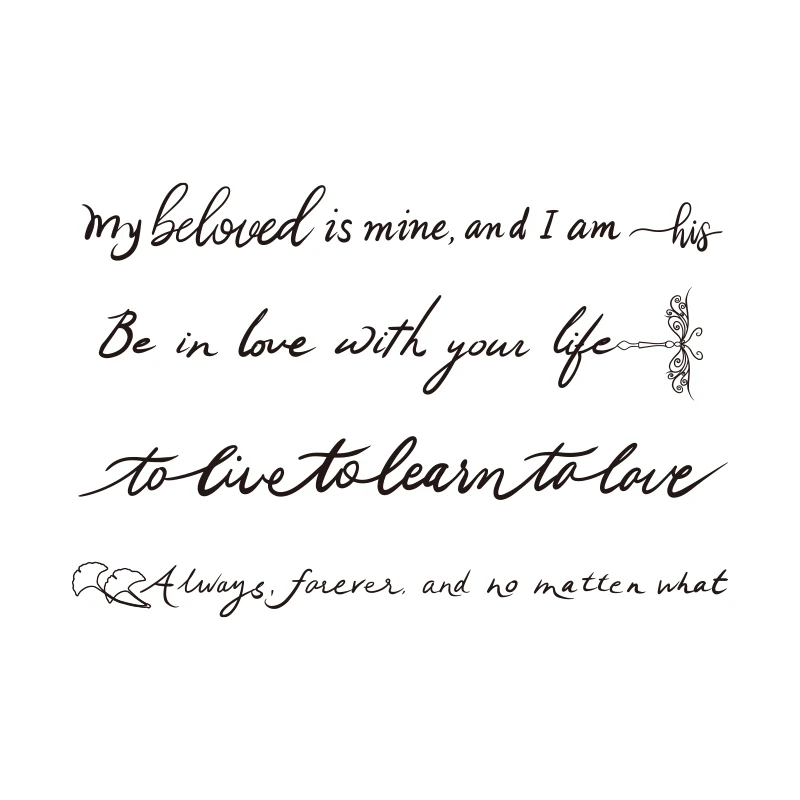 My beloved is mine, and I am his
Be in love with your life
to live to learn to love
Always, forever, and no matten what